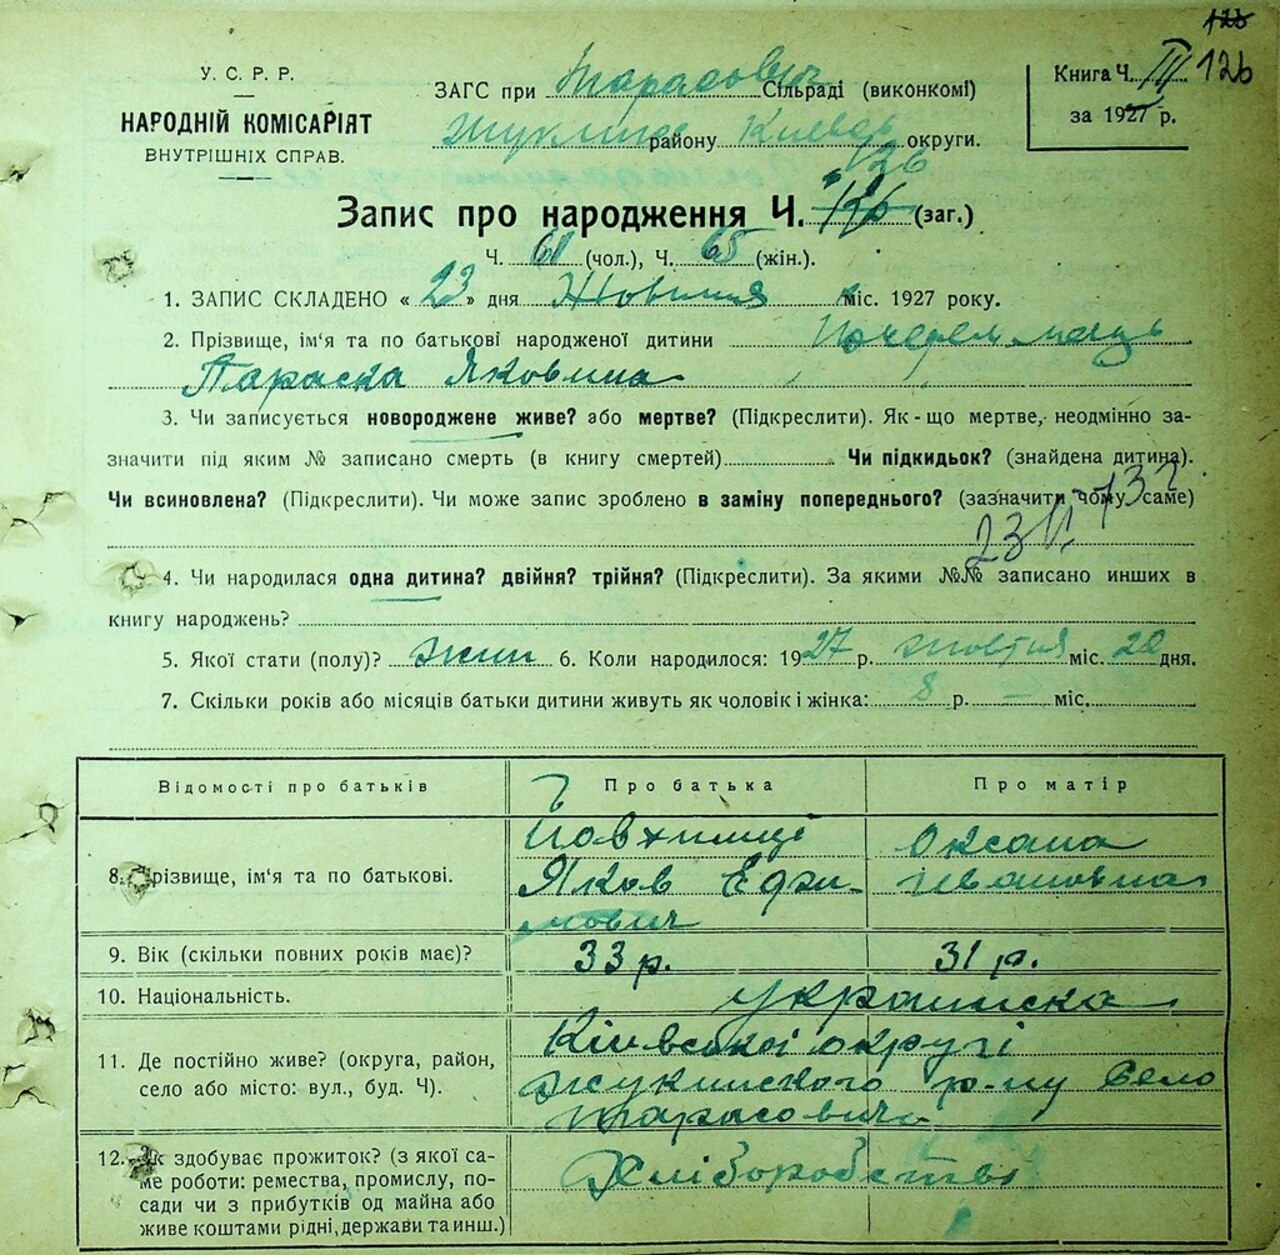 126
У. С. Р. Р.
НАРОДНІЙ КОМІСАРІЯТ
ВНУТРІШНІХ СПРАВ.
ЗАГС при Тарасович Сільраді (виконкомі)
Жукинс району Києвськ округи.
Книга Ч. III 126
за 1927 р.
126
Запис про народження Ч. 126 (заг.)
Ч. 61 (чол.), Ч. 65 (жін.).
1. ЗАПИС СКЛАДЕНО « 23 » дня Жовтня міс. 1927 року.
2. Прізвище, ім'я та по батькові народженої дитини
Параска Яковлина
3. Чи записується новороджене живе? або мертве? (Підкреслити). Як-що мертве, неодмінно за-
значити під яким № записано смерть (в книгу смертей) Чи підкидьок? (знайдена дитина).
Чи всиновлена? (Підкреслити). Чи може запис зроблено в заміну попереднього? (зазначити чому саме)
4. Чи народилася одна дитина? двійня? трійня? (Підкреслити). За якими №№ записано инших в
книгу народжень?
5. Якої стати (полу)? жин 6. Коли народилося: 1927 р. жовтня міс. 20 дня.
7. Скільки років або місяців батьки дитини живуть як чоловік і жінка: 8 р. — міс.
Відомості про батьків Про батька Про матір
8. Прізвище, ім'я та по батькові. Яков Ефи- Оксана Івановна
мович
9. Вік (скільки повних років має)? 33 р. 31 р.
10. Національність. украинска
11. Де постійно живе? (округа, район, Київської округі
село або місто: вул., буд. Ч). Жукинского р-ну Село
Тарасовичи
12. Як здобуває прожиток? (з якої са- Хліборобство
ме роботи: ремества, промислу, по-
сади чи з прибутків од майна або
живе коштами рідні, держави та инш.)